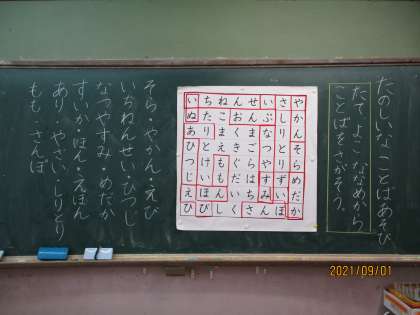 たのしいな ことばあそび
たて、よこ、ななめから
ことばをさがそう。
やかんそらめだか
さしりとりずいぽ
いぶなつやすみん
せんまごらはちさ
んおくきぐだいく
ねこまえももんし
ちたりとけいほび
いぬあひつじえび
そら・やかん・えび
いちねんせい・ひつじ
なつやすみ・めだか
すいか・ほん・えほん
あり・やさい・しりとり
もも・さんぽ
2021/09/01